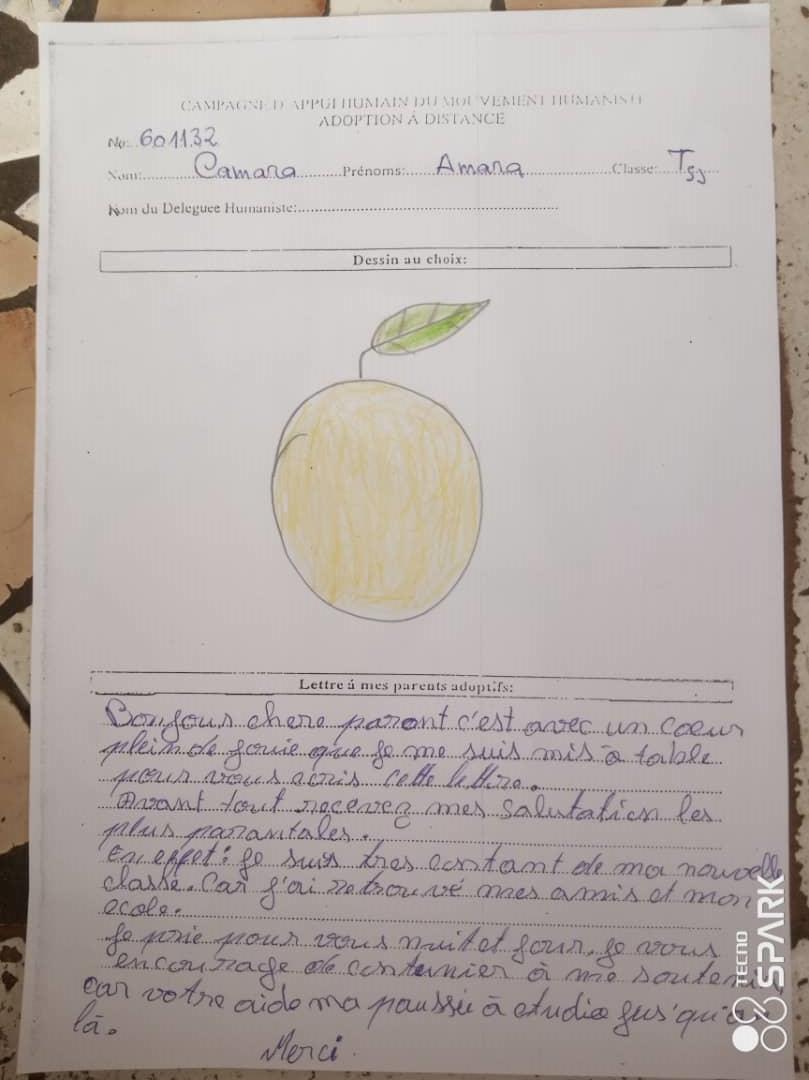 CAMPAGNE D'APPUI HUMAIN DU MOUVEMENT HUMANISTE
ADOPTION Á DISTANCE
No:..601132
Nom:..........Camara..........Prénoms:......Amara..............Classe:..T
Nom du Deleguee Humaniste:..............................................
Dessin au choix:
Lettre á mes parents adoptifs:
Bonjour chere parant c'est avec un coeur
plein de jouie que je me suis mis à table
pour vous ecris cette lettre.
Avant tout recevez mes salutation les
plus parantales.
En effet : je suis tres contant de ma nouvelle
classe. Car j'ai retrouvé mes amis et mon
ecole.
Je prie pour vous nuit et jour, je vous
encourage de contunier à me soutenir,
car votre aide ma paussée à etudie jus'qu'a
là.
Merci.
TECNO
SPARK